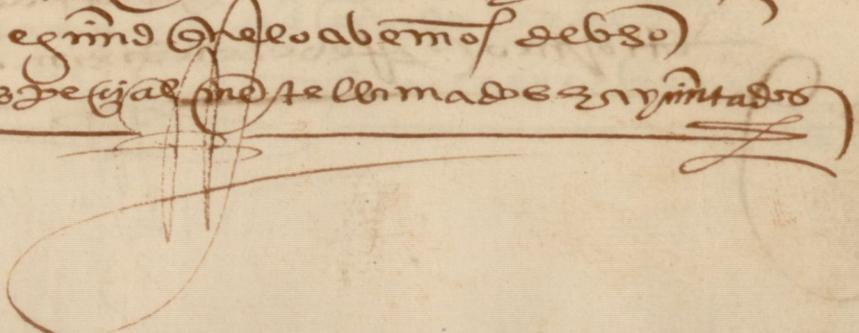 segund que lo abemos de uso
espeçialmente llamados e ayuntados